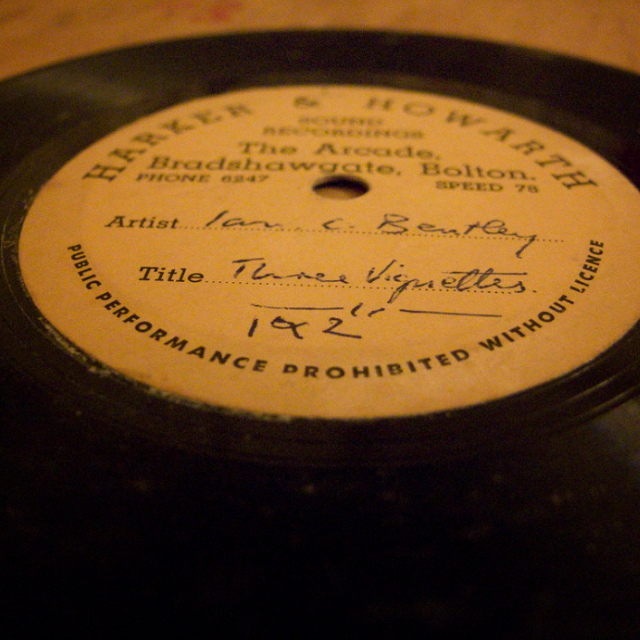 HARKER & HOWARTH
SOUND
RECORDINGS
The Arcade,
Bradshawgate, Bolton.
PHONE 6247
SPEED 78
Artist Ian C. Bentley
Title Three Vignettes
1 & 2
PUBLIC PERFORMANCE PROHIBITED WITHOUT LICENCE